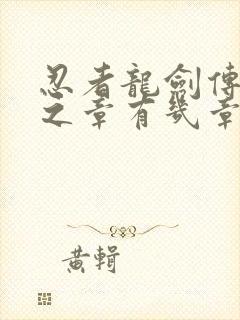 忍者龍劍傳
之章有幾章
黃輯